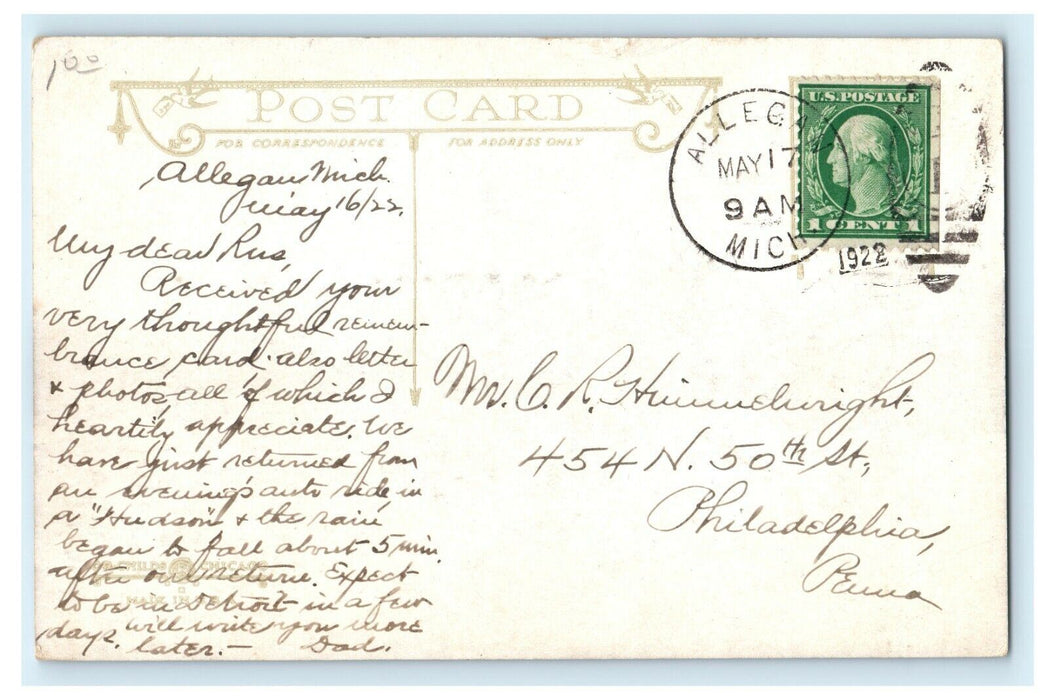 1.00
POST CARD
FOR CORRESPONDENCE
FOR ADDRESS ONLY
Allegan Mich.
May 16/22.
My dear Rus,
Received your
very thoughtful remem-
brance card. also letter
& photos, all of which I
heartily appreciate. We
have just returned from
an evening's auto ride in
a "Hudson" & the rain
began to fall about 5 min.
after our return. Expect
to be in Detroit in a few
days. Will write you more
later. - Dad.
CHILDS CHICAGO
MADE IN
ALLEGAN
MAY 17
9 AM
MICH.
1922
U.S. POSTAGE
1 CENT 1
Mr. C. R. Himmelwright,
454 N. 50th St.,
Philadelphia,
Penna